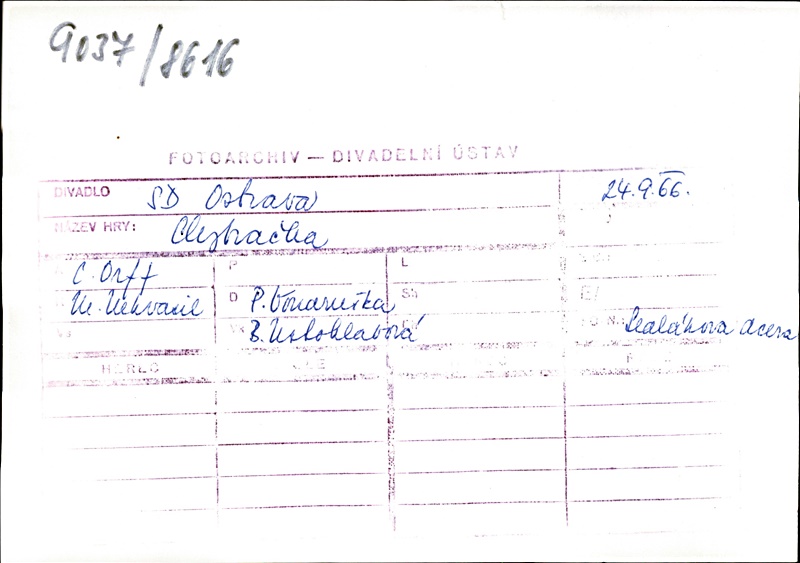 9037/8616
FOTOARCHIV — DIVADELNÍ ÚSTAV
DIVADLO SD Ostrava 24.9.66.
NÁZEV HRY: Chytračka
C. Orff P L
D P. Vonaruška
B. Ustohlavová Sedlákova dcera
HEREC